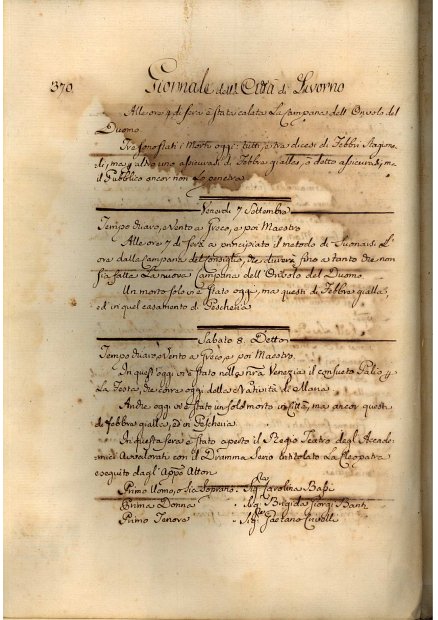 370. Giornale della Città di Livorno
Alle ore 4 di sera è stata calata La Campana dell'Orivolo del
Duomo
Tre sono stati i Morti oggi: tutti, e tre dicesi di Febbri Stagiona-
li, ma altro uno assicurasi di Febbre gialla, è detto assicurasi, ma
il Pubblico ancor non Lo penetra
Venerdì 7 Settembre
Tempo Chiaro, e Vento a Greco, e poi Maestro
Alle ore 7 di sera à principiato il metodo di Suonarsi L'
ora dalla Campana del Consiglio, che durerà fino a tanto che non
sia fatta La nuova Campana dell'Orivolo del Duomo.
Un morto solo vi è stato oggi, ma questi di Febbre gialla,
ed in quel casamento di Pescheria
Sabato 8. Detto
Tempo Chiaro, e Vento a Greco, e poi Maestro
In quest'oggi vi è stato nella nrã Venezia il consueto Palio p
La Festa, che corre oggi della Natività di Maria
Anche oggi vi è stato un sol morto in Città, ma ancor questi
di febbre gialla, ed in Pescheria
In questa sera è stato aperto il Regio Teatro degl'Accade-
mici Avvalorati con il Dramma Serio intitolato La Cleopatra
eseguito dagl'Appõ Attori
Primo Uomo, o sia Soprano. Sig.ra Carolina Bassi
Prima Donna. Sig.ra Brigida Giorgi Banti
Primo Tenore. Sig.